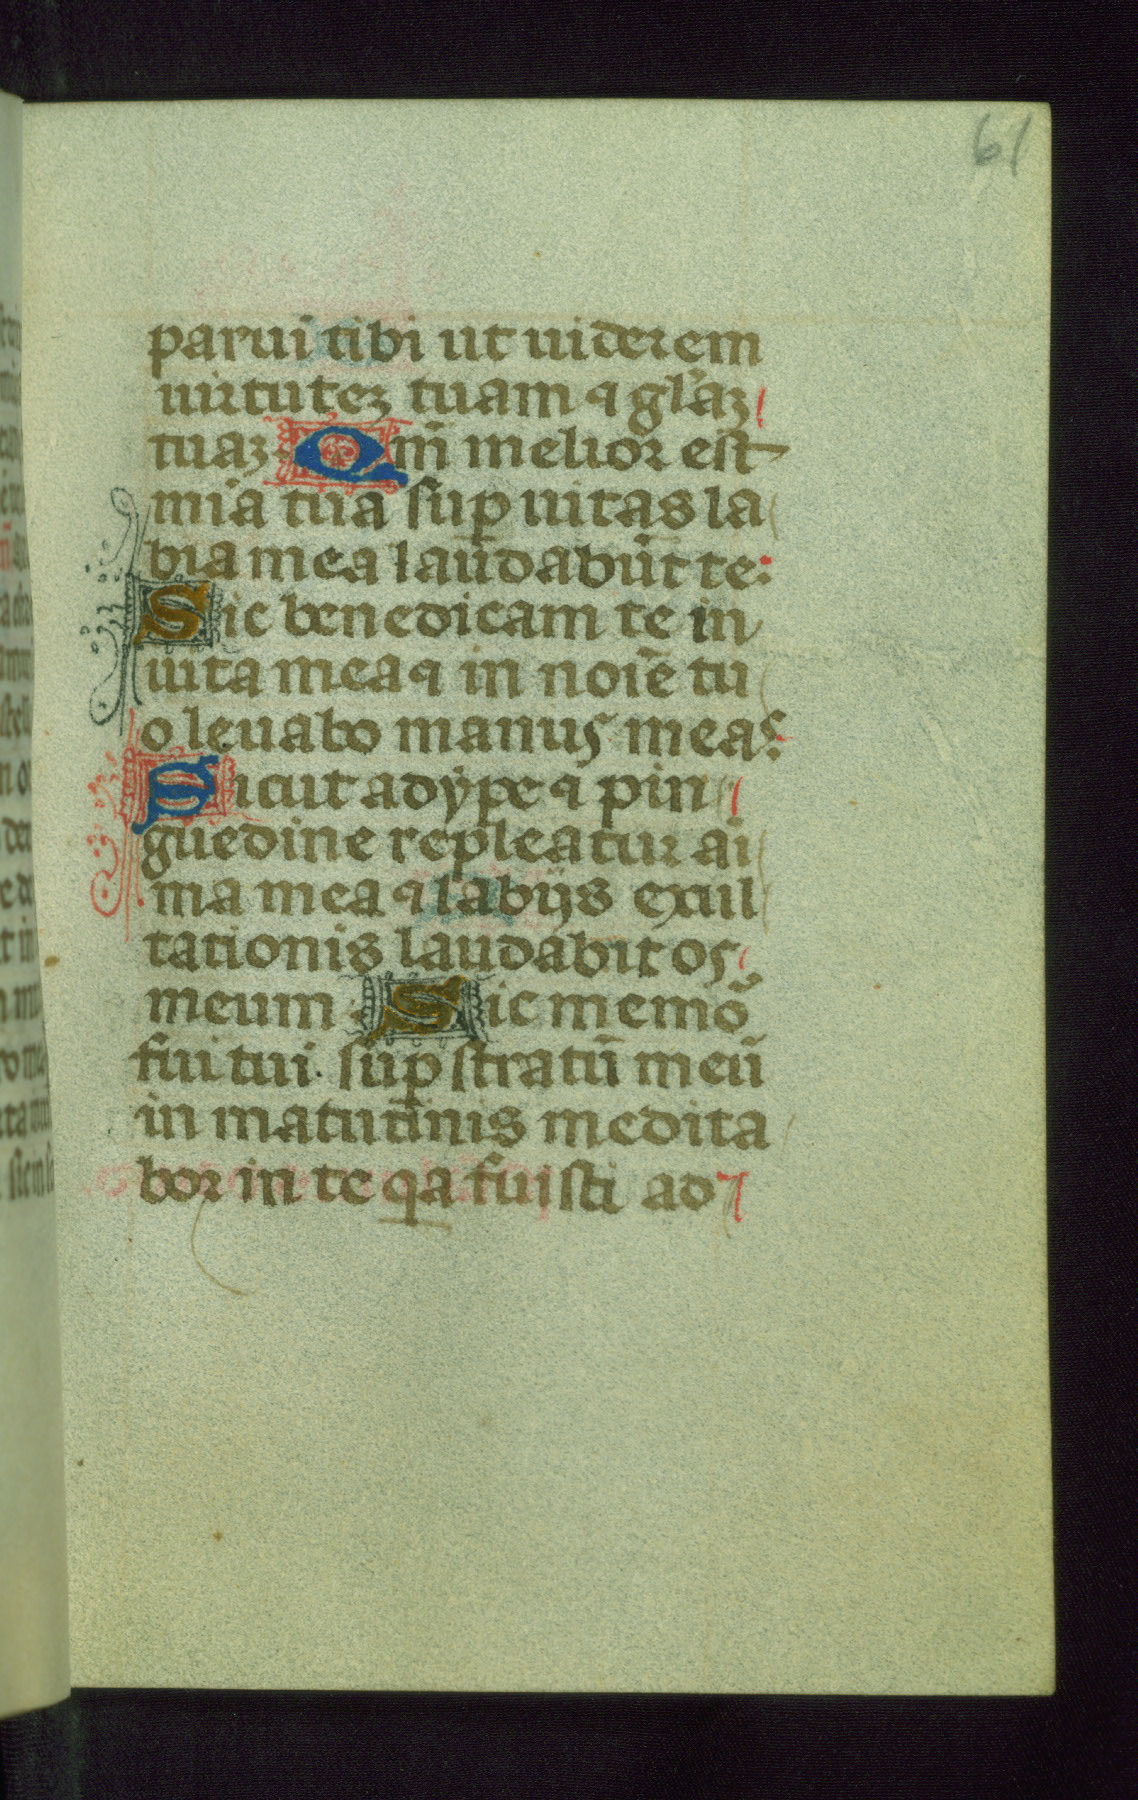 61
parui tibi ut uiderem
uirtuteꝫ tuam ⁊ gl'aꝫ
tuaꝫ. Qm̄ melior est
mīa tua suꝑ uitas la
bia mea laudabūt te:
Sic benedicam te in
uita mea ⁊ in noīe tu
o leuabo manus meas.
Sicut adẏpe ⁊ pin
guedine repleatur ai
ma mea ⁊ labijs exul
tationis laudabit os
meum. Sic memor̄
fui tui. suꝑ stratū meū
in matutinis medita
bor in te qa fuisti ad